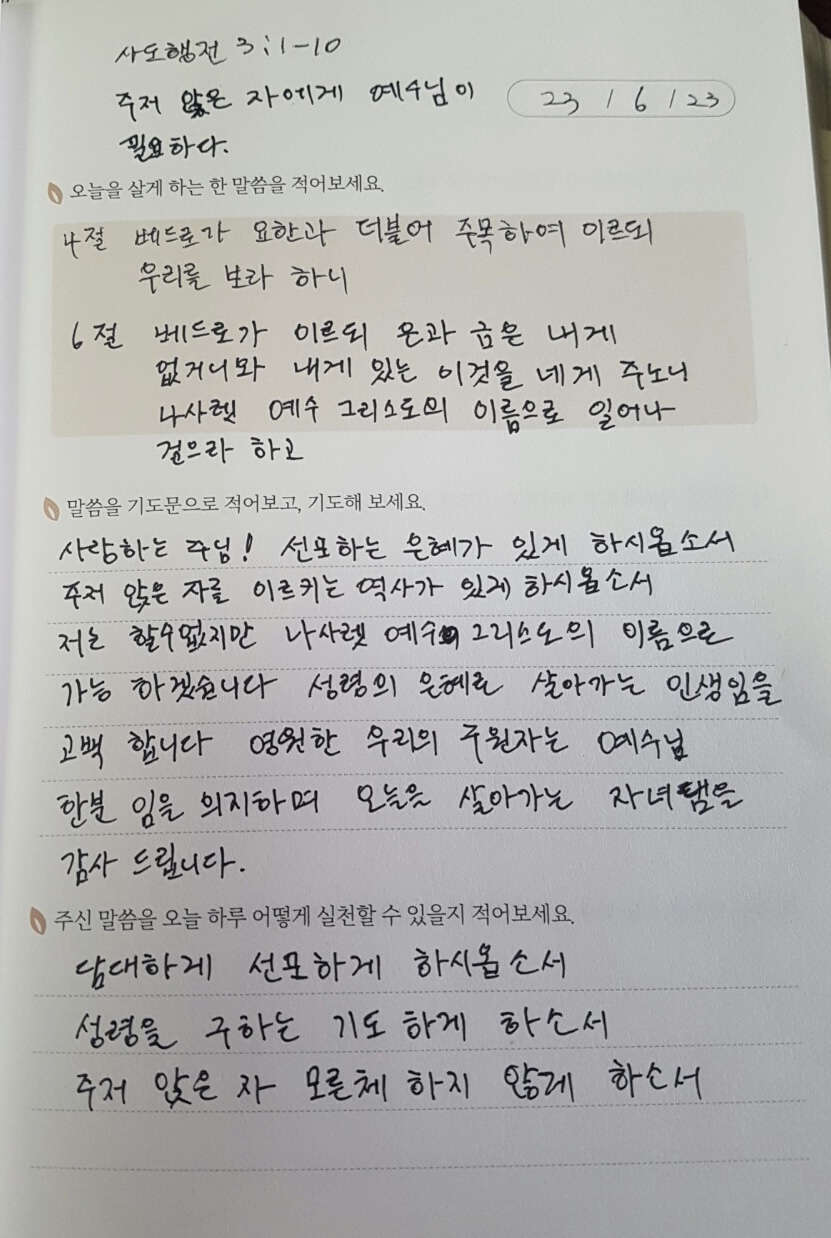 사도행전 3:1-10
주저 앉은 자에게 예수님이
23 / 6 / 23
필요하다.
오늘을 살게 하는 한 말씀을 적어보세요.
4절 베드로가 요한과 더불어 주목하여 이르되
우리를 보라 하니
6절 베드로가 이르되 은과 금은 내게
없거니와 내게 있는 이것을 네게 주노니
나사렛 예수 그리스도의 이름으로 일어나
걸으라 하고
말씀을 기도문으로 적어보고, 기도해 보세요.
사랑하는 주님! 선포하는 은혜가 있게 하시옵소서
주저 앉은 자를 이르키는 역사가 있게 하시옵소서
저는 할수없지만 나사렛 예수 그리스도의 이름으로
가능 하겠습니다 성령의 은혜로 살아가는 인생임을
고백 합니다 영원한 우리의 구원자는 예수님
한분 임을 의지하며 오늘을 살아가는 자녀됨을
감사 드립니다.
주신 말씀을 오늘 하루 어떻게 실천할 수 있을지 적어보세요.
담대하게 선포하게 하시옵소서
성령을 구하는 기도 하게 하소서
주저 앉은 자 모른체 하지 않게 하소서